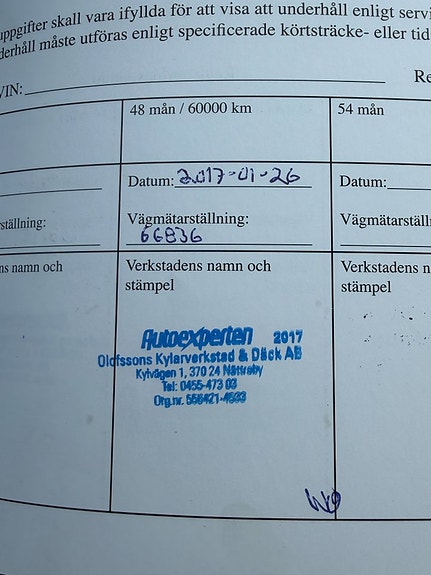 uppgifter skall vara ifyllda för att visa att underhåll enligt servi
derhåll måste utföras enligt specificerade körtsträcke- eller tid
VIN:
Re
48 mån / 60000 km
54 mån
Datum: 2017-01-26
Datum:
ställning:
Vägmätarställning:
Vägmätarställn
66836
ns namn och
Verkstadens namn och
stämpel
Verkstadens n
stämpel
Autoexperten 2017
Olofssons Kylarverkstad & Däck AB
Kylvägen 1, 370 24 Nättraby
Tel: 0455-473 03
Org.nr.